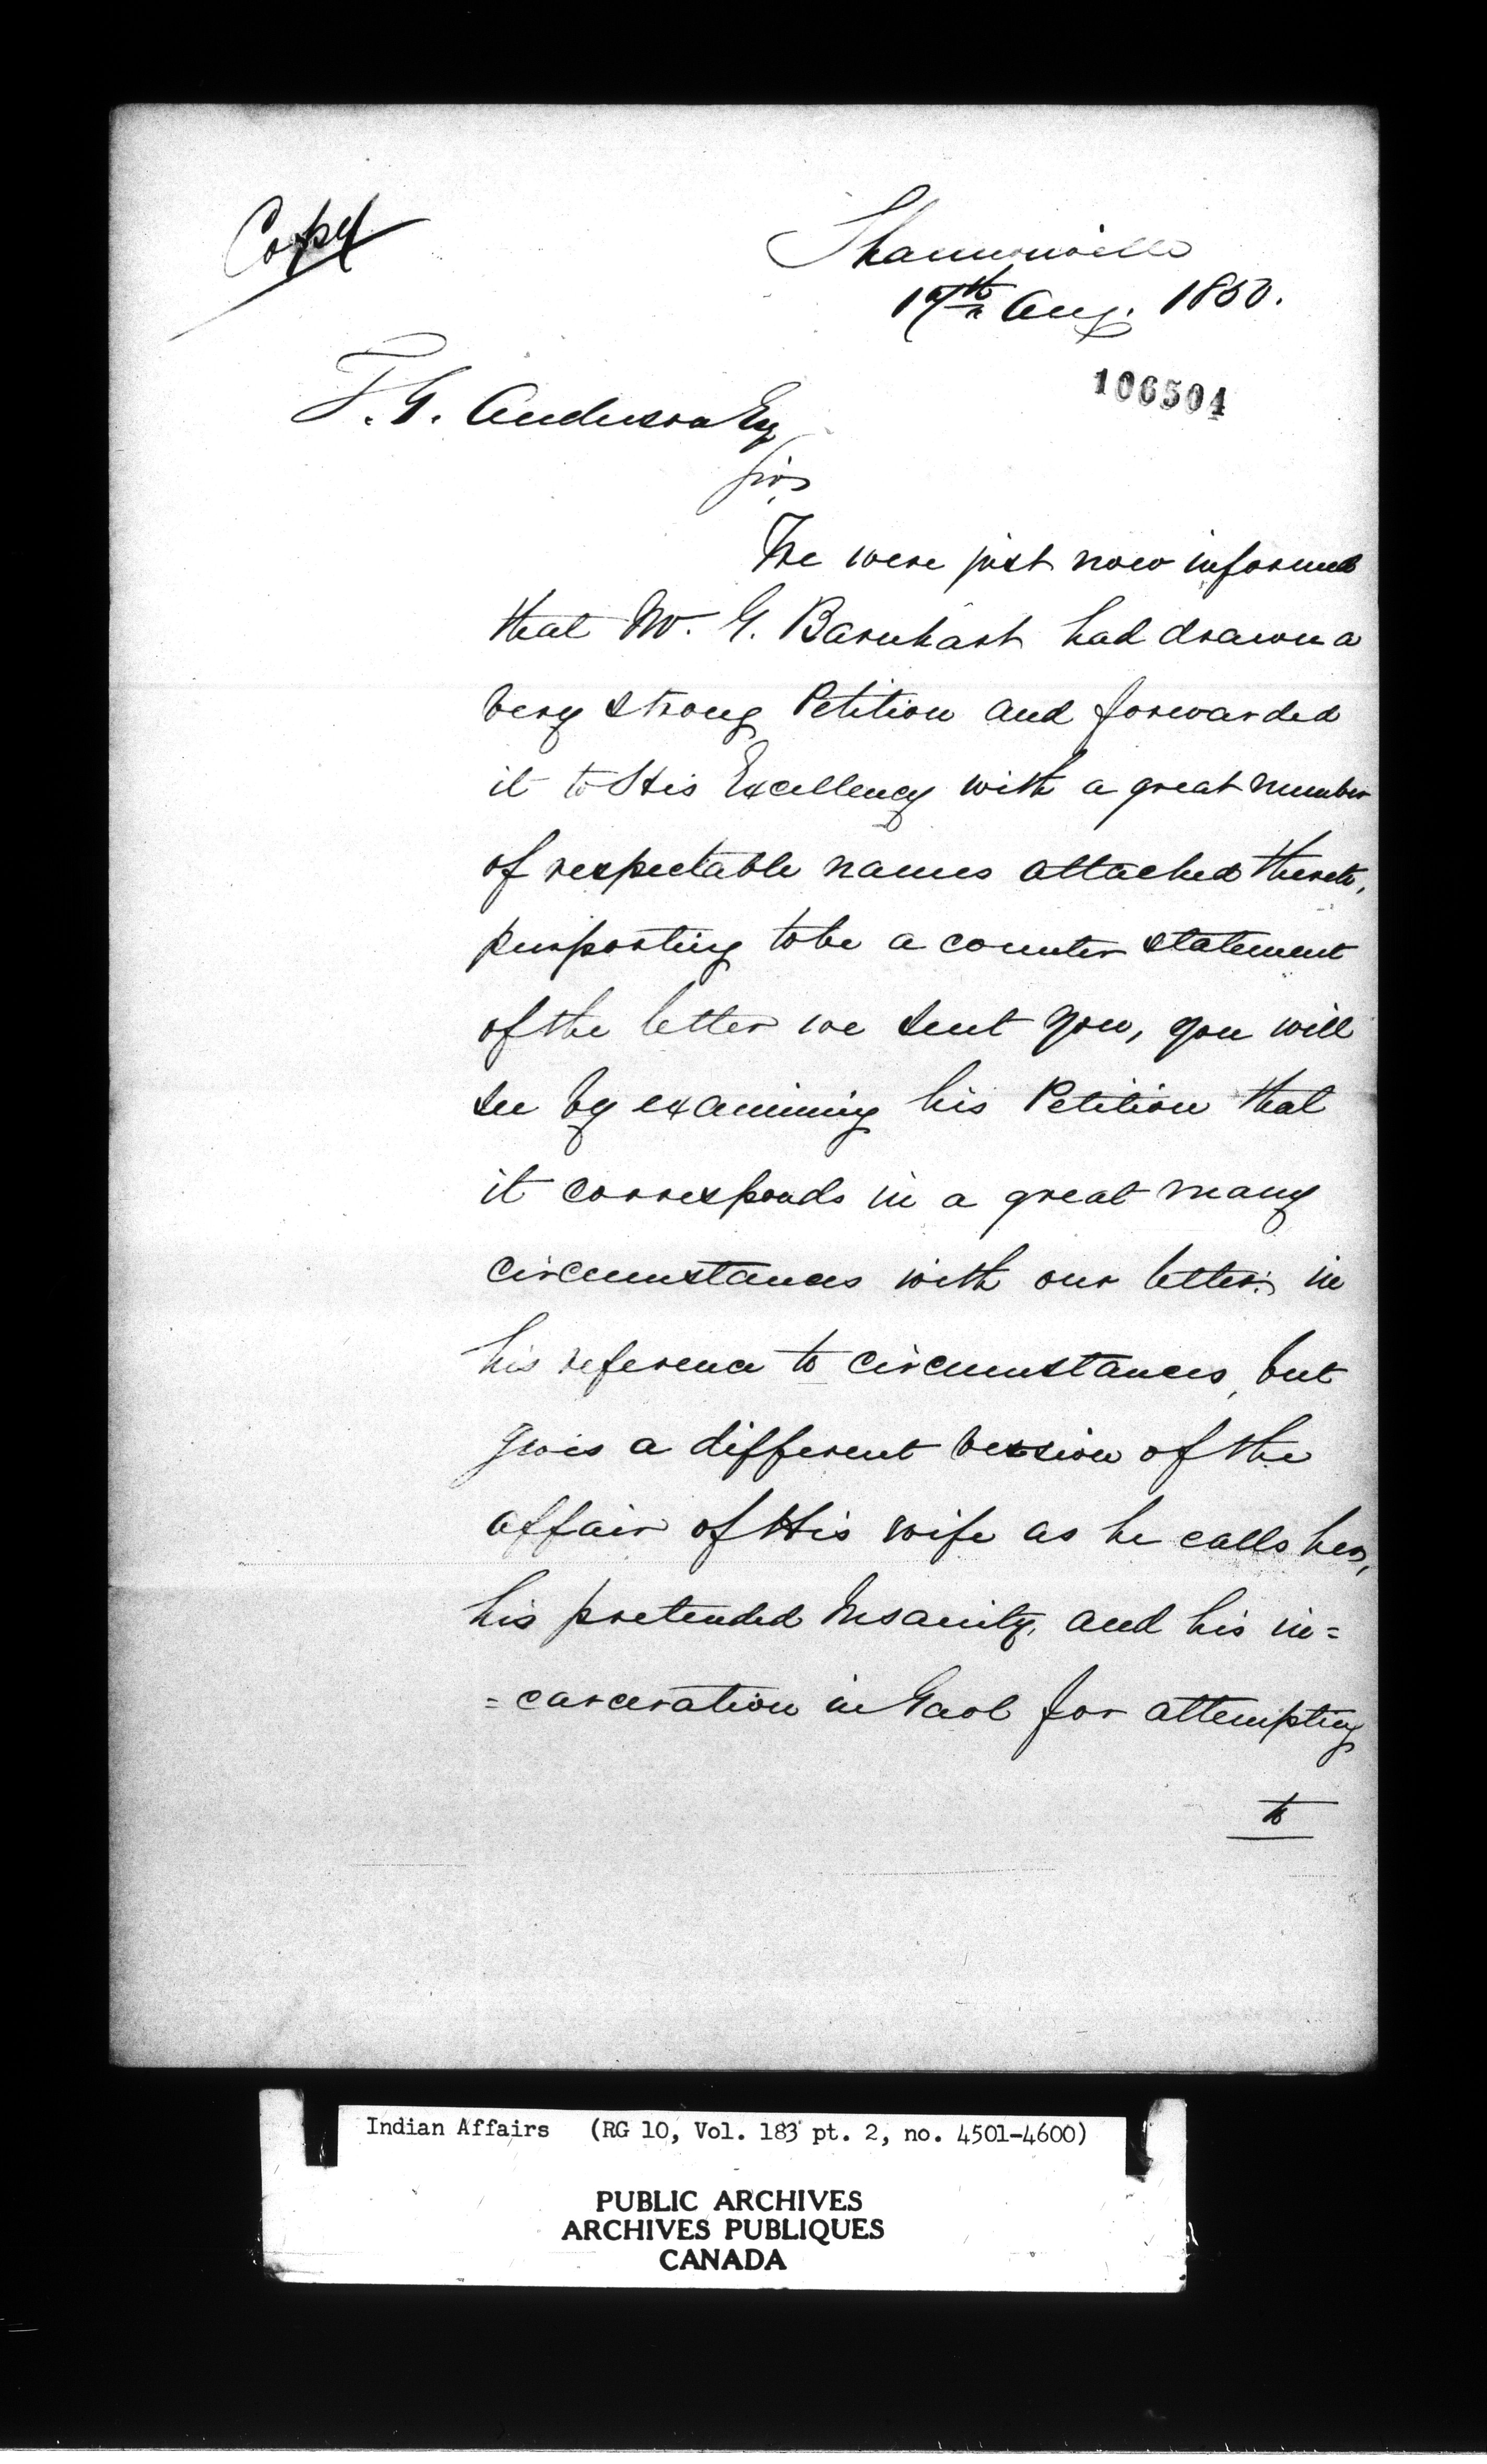 Copy
Shannonville
17th Aug. 1850.
106504
T. G. Anderson Esq
Sir,
We were just now informed
that W. G. Barnhart had drawn a
very strong Petition and forwarded
it to His Excellency with a great number
of respectable names attached thereto,
purporting to be a counter statement
of the letter we sent you, you will
see by examining his Petition that
it corresponds in a great many
circumstances with our letter; in
his reference to circumstances, but
gives a different version of the
affair of His wife as he calls her,
his pretended Insanity, and his in=
=carceration in Gaol for attempting
to
Indian Affairs (RG 10, Vol. 183 pt. 2, no. 4501-4600)
PUBLIC ARCHIVES
ARCHIVES PUBLIQUES
CANADA